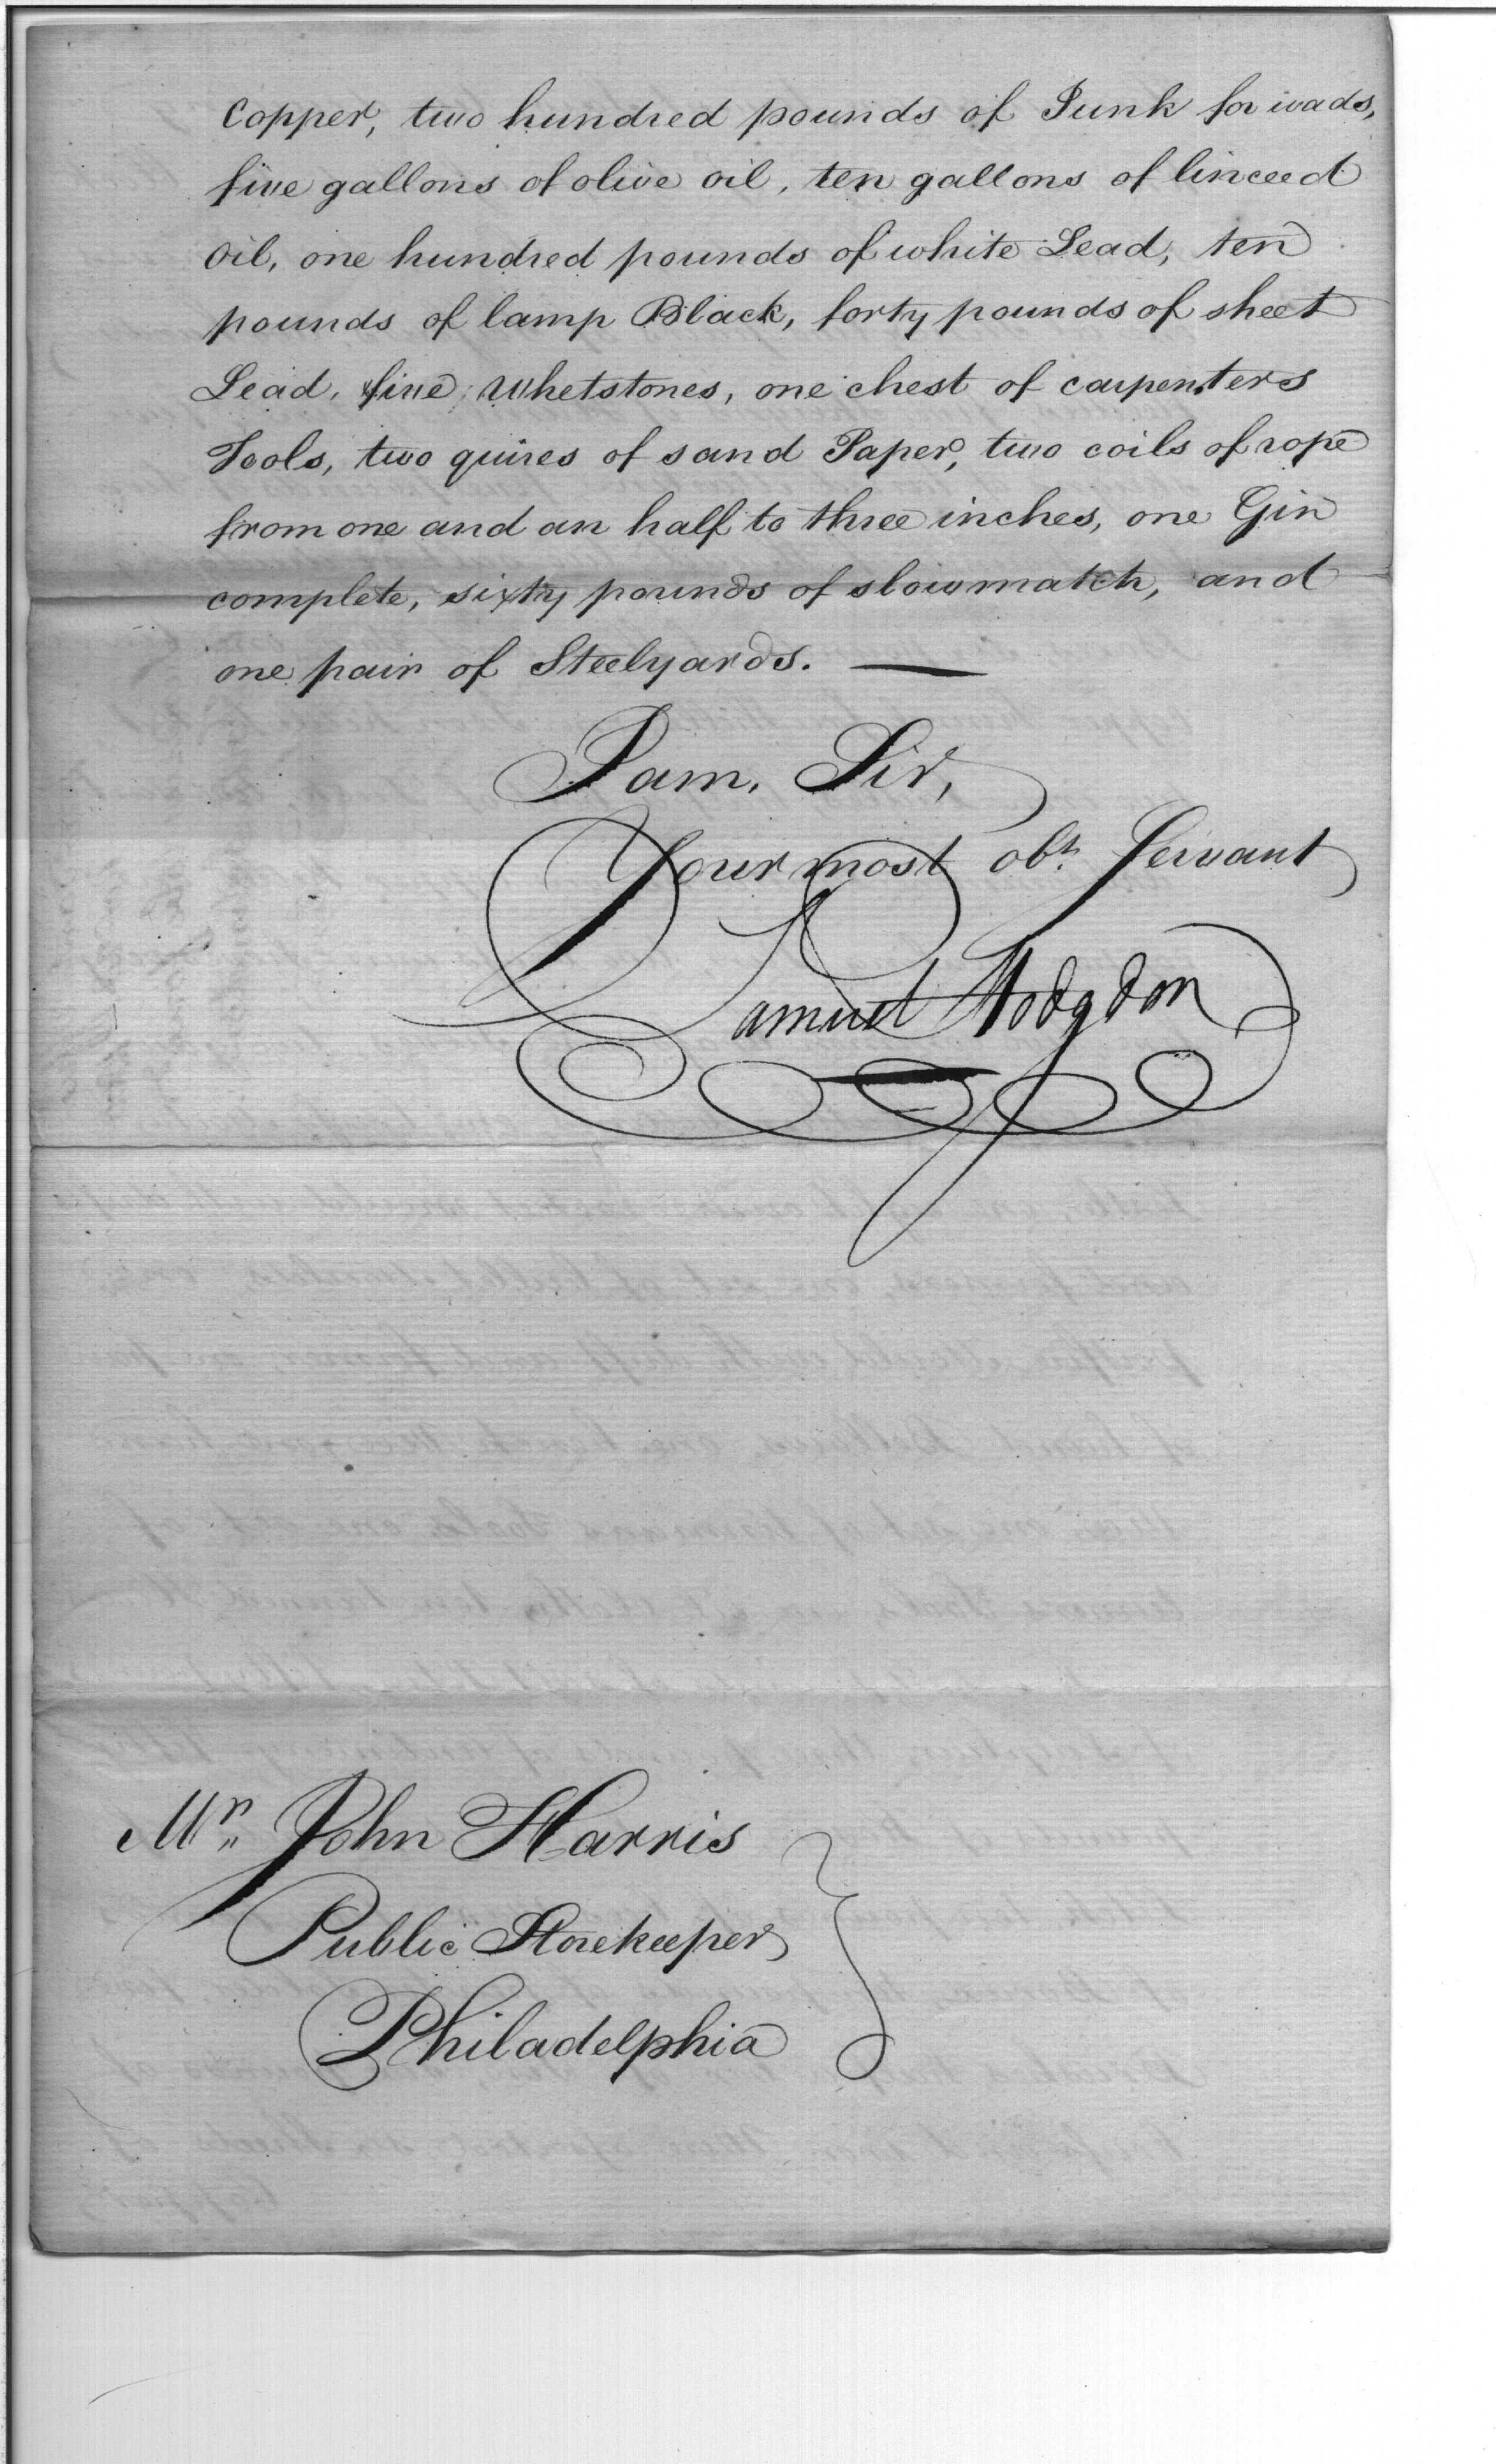 Copper, two hundred pounds of Junk for wads,
five gallons of olive oil, ten gallons of linceed
oil, one hundred pounds of white Lead, ten
pounds of lamp Black, forty pounds of sheet
Lead, five Whetstones, one chest of carpenters
Tools, two quires of sand Paper, two coils of rope
from one and an half to three inches, one Gin
complete, sixty pounds of slowmatch, and
one pair of Steelyards. —
I am, Sir,
Your most obt. Servant
Samuel Hodgdon
Mr. John Harris
Public Storekeeper
Philadelphia